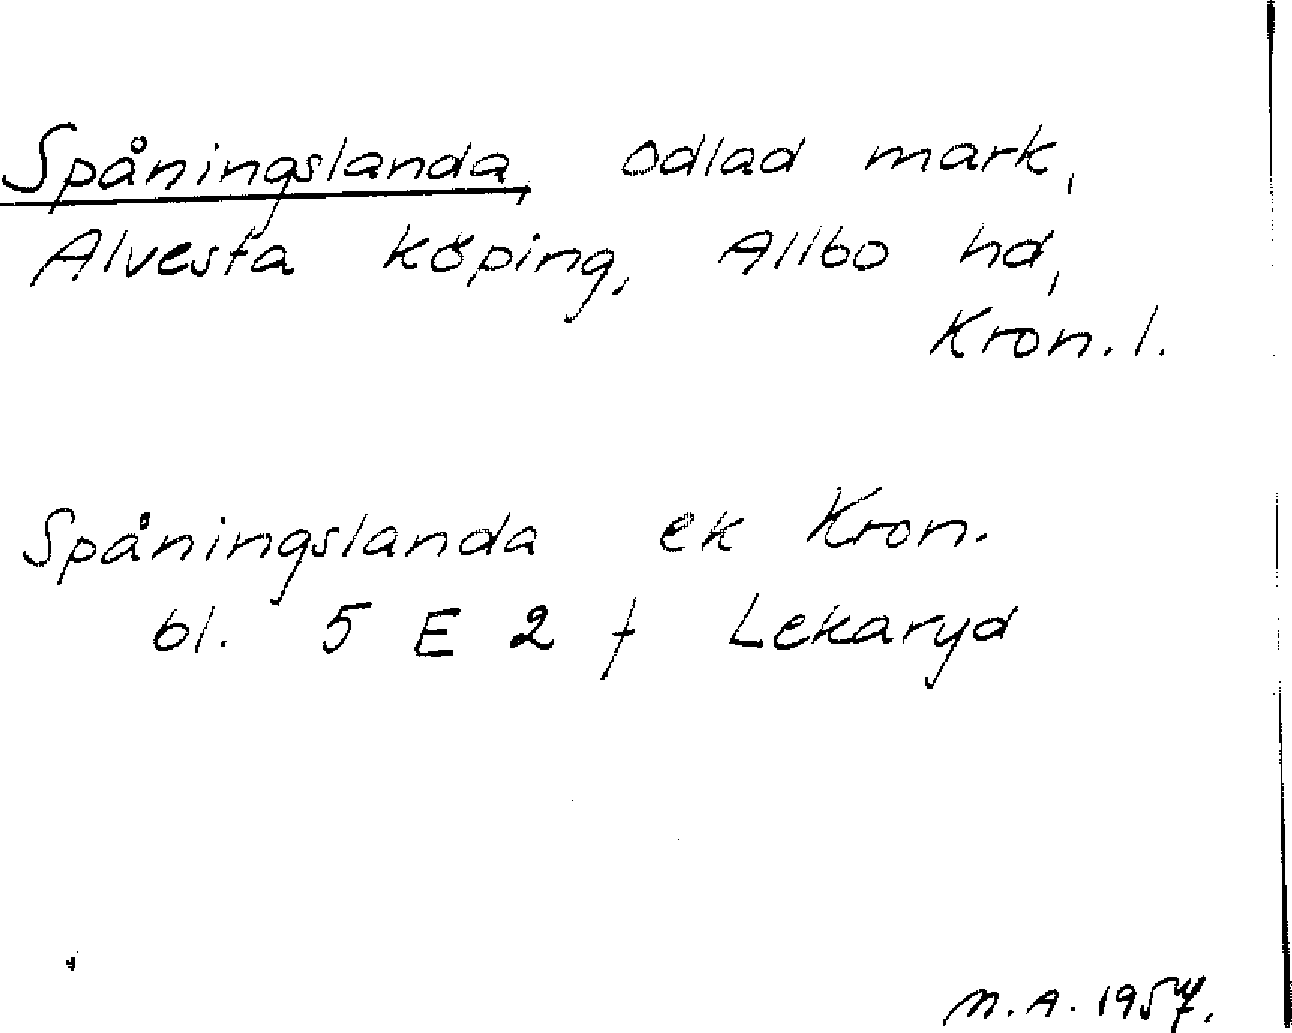 Spåningslanda, odlad mark,
Alvesta köping, Allbo hd,
Kron. l.
Spåningslanda ek Kron.
bl. 5 E 2 f Lekaryd
M. A. 1957.